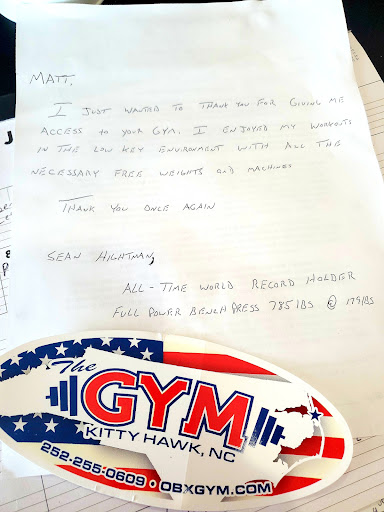 MATT,
I JUST WANTED TO THANK YOU FOR GIVING ME
ACCESS TO YOUR GYM. I ENJOYED MY WORKOUTS
IN THE LOW KEY ENVIRONMENT WITH ALL THE
NECESSARY FREE WEIGHTS and MACHINES
THANK YOU ONCE AGAIN
SEAN HIGHTMAN,
ALL-TIME WORLD RECORD HOLDER
FULL POWER BENCH PRESS 785 lBS @
The
GYM
KITTY HAWK, NC
252-255-0609 • OBXGYM.COM